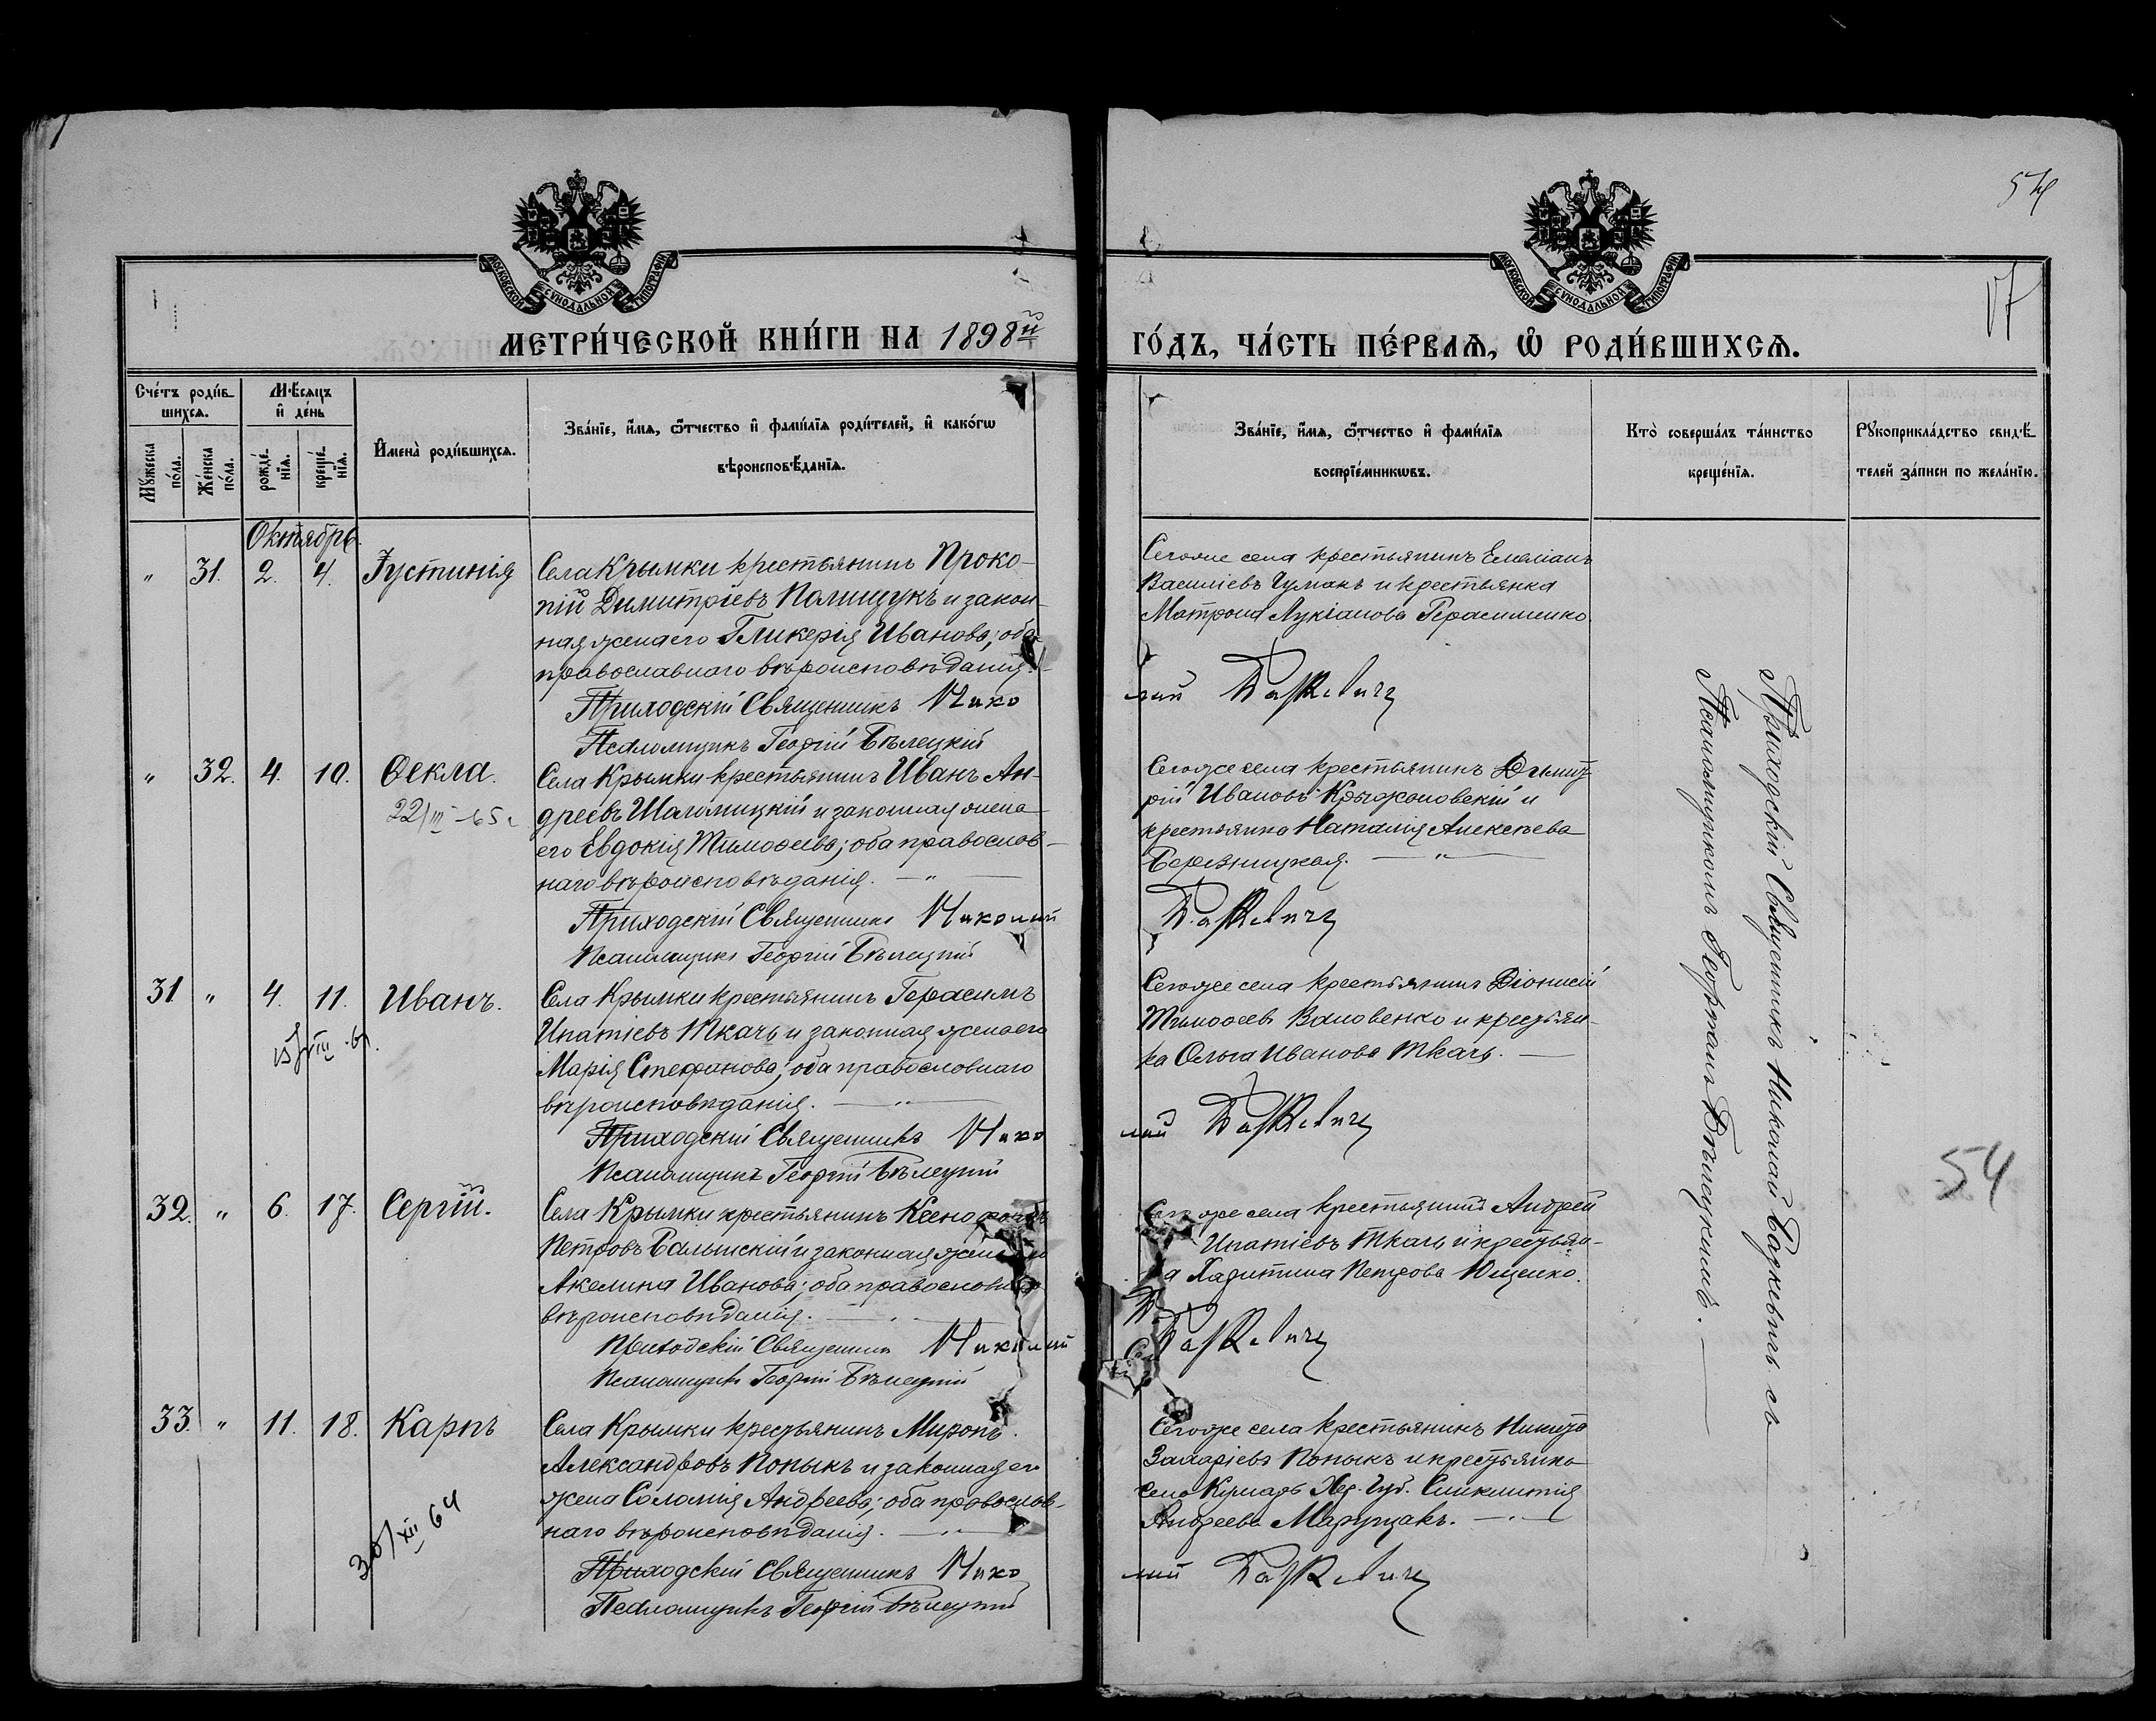 54
17
МОСКОВСКОЙ СѴНОДАЛЬНОЙ ТИПОГРАФІИ
МОСКОВСКОЙ СѴНОДАЛЬНОЙ ТИПОГРАФІИ
МЕТРИ́ЧЕСКОЙ КНИ́ГИ НА 1898й
ГО́ДЪ, ЧА́СТЬ ПЕ́РВАѦ, Ѡ РОДИ́ВШИХСѦ.
Сче́тъ роди́в-
шихсѧ.
Мꙋжеска по́ла.
Же́нска по́ла.
Мѣ́сѧцъ
и҆ де́нь
рожде́нїѧ.
креще́нїѧ.
И҆мена̀ роди́вшихсѧ.
Зва́нїе, и҆́мѧ, ѻ҆́тчество и҆ фами́лїѧ роди́телей, и҆ како́гѡ
вѣроисповѣ́данїѧ.
Зва́нїе, и҆́мѧ, ѻ҆́тчество и҆ фами́лїѧ
воспрїе́мникѡвъ.
Кто̀ соверша́лъ та́инство
креще́нїѧ.
Рꙋкоприкла́дство свидѣ́-
телей за́писи по жела́нїю.
Октябрь.
" 31. 2. 4. Іустинія
Села Крымки крестьянинъ Проко-
пій Димитріевъ Полищукъ и закон-
ная жена его Гликерія Иванова; оба
православнаго вѣроисповѣданія.
Приходскій Священникъ Нико
Псаломщикъ Георгій Бѣлецкій
Сегоже села крестьянинъ Емеліанъ
Василіевъ Чумакъ и крестьянка
Матрона Лукіанова Герасименко.
лай Базкевичъ
" 32. 4. 10. Ѳекла.
22/III-65 г
Села Крымки крестьянинъ Иванъ Ан-
дреевъ и законная жена
его Евдокія Тимоѳеева; оба православ-
наго вѣроисповѣданія. — " —
Приходскій Священникъ Николай
Псаломщикъ Георгій Бѣлецкій
Сегоже села крестьянинъ Димит-
рій Ивановъ Крыжановскій и
крестьянка Наталія Алексѣева
Березницкая. — " —
Базкевичъ
31 " 4. 11. Иванъ.
Села Крымки крестьянинъ Герасимъ
Ипатіевъ Ткачъ и законная жена его
Марія Стефанова; оба православнаго
вѣроисповѣданія. — " —
Приходскій Священникъ Нико
Псаломщикъ Георгій Бѣлецкій
Сегоже села крестьянинъ Діонисій
ТимоѳеевъВаловенко и крестьян-
ка Ольга Иванова Ткачъ. —
лай Базкевичъ
32. " 6. 17. Сергій.
Села Крымки крестьянинъ Ксенофонтъ
Петровъ и законная жена его
Акелина Иванова; оба православнаго
вѣроисповѣданія.
Приходскій Священникъ Николай
Псаломщикъ Георгій Бѣлецкій
Сегоже села крестьянинъ Андрей
Ипатіевъ Ткачъ и крестьян-
ка Харитина Петрова Ющенко.
Базкевичъ
33. " 11. 18. Карпъ
30/XII 64
Села Крымки крестьянинъ Миронъ
Александровъ Попыкъ и законная его
жена Соломія Андреева; оба православ-
наго вѣроисповѣданія. — " —
Приходскій Священникъ Нико
Псаломщикъ Георгій Бѣлецкій
Сегоже села крестьянинъ Никита
Захаріевъ Попыкъ и крестьянка
села Хер. Губ.
Андреева Марущакъ. — " —
лай Базкевичъ
Приходскій Священникъ Николай Базкевичъ съ
Псаломщикомъ Георгіемъ Бѣлецкимъ. —
54